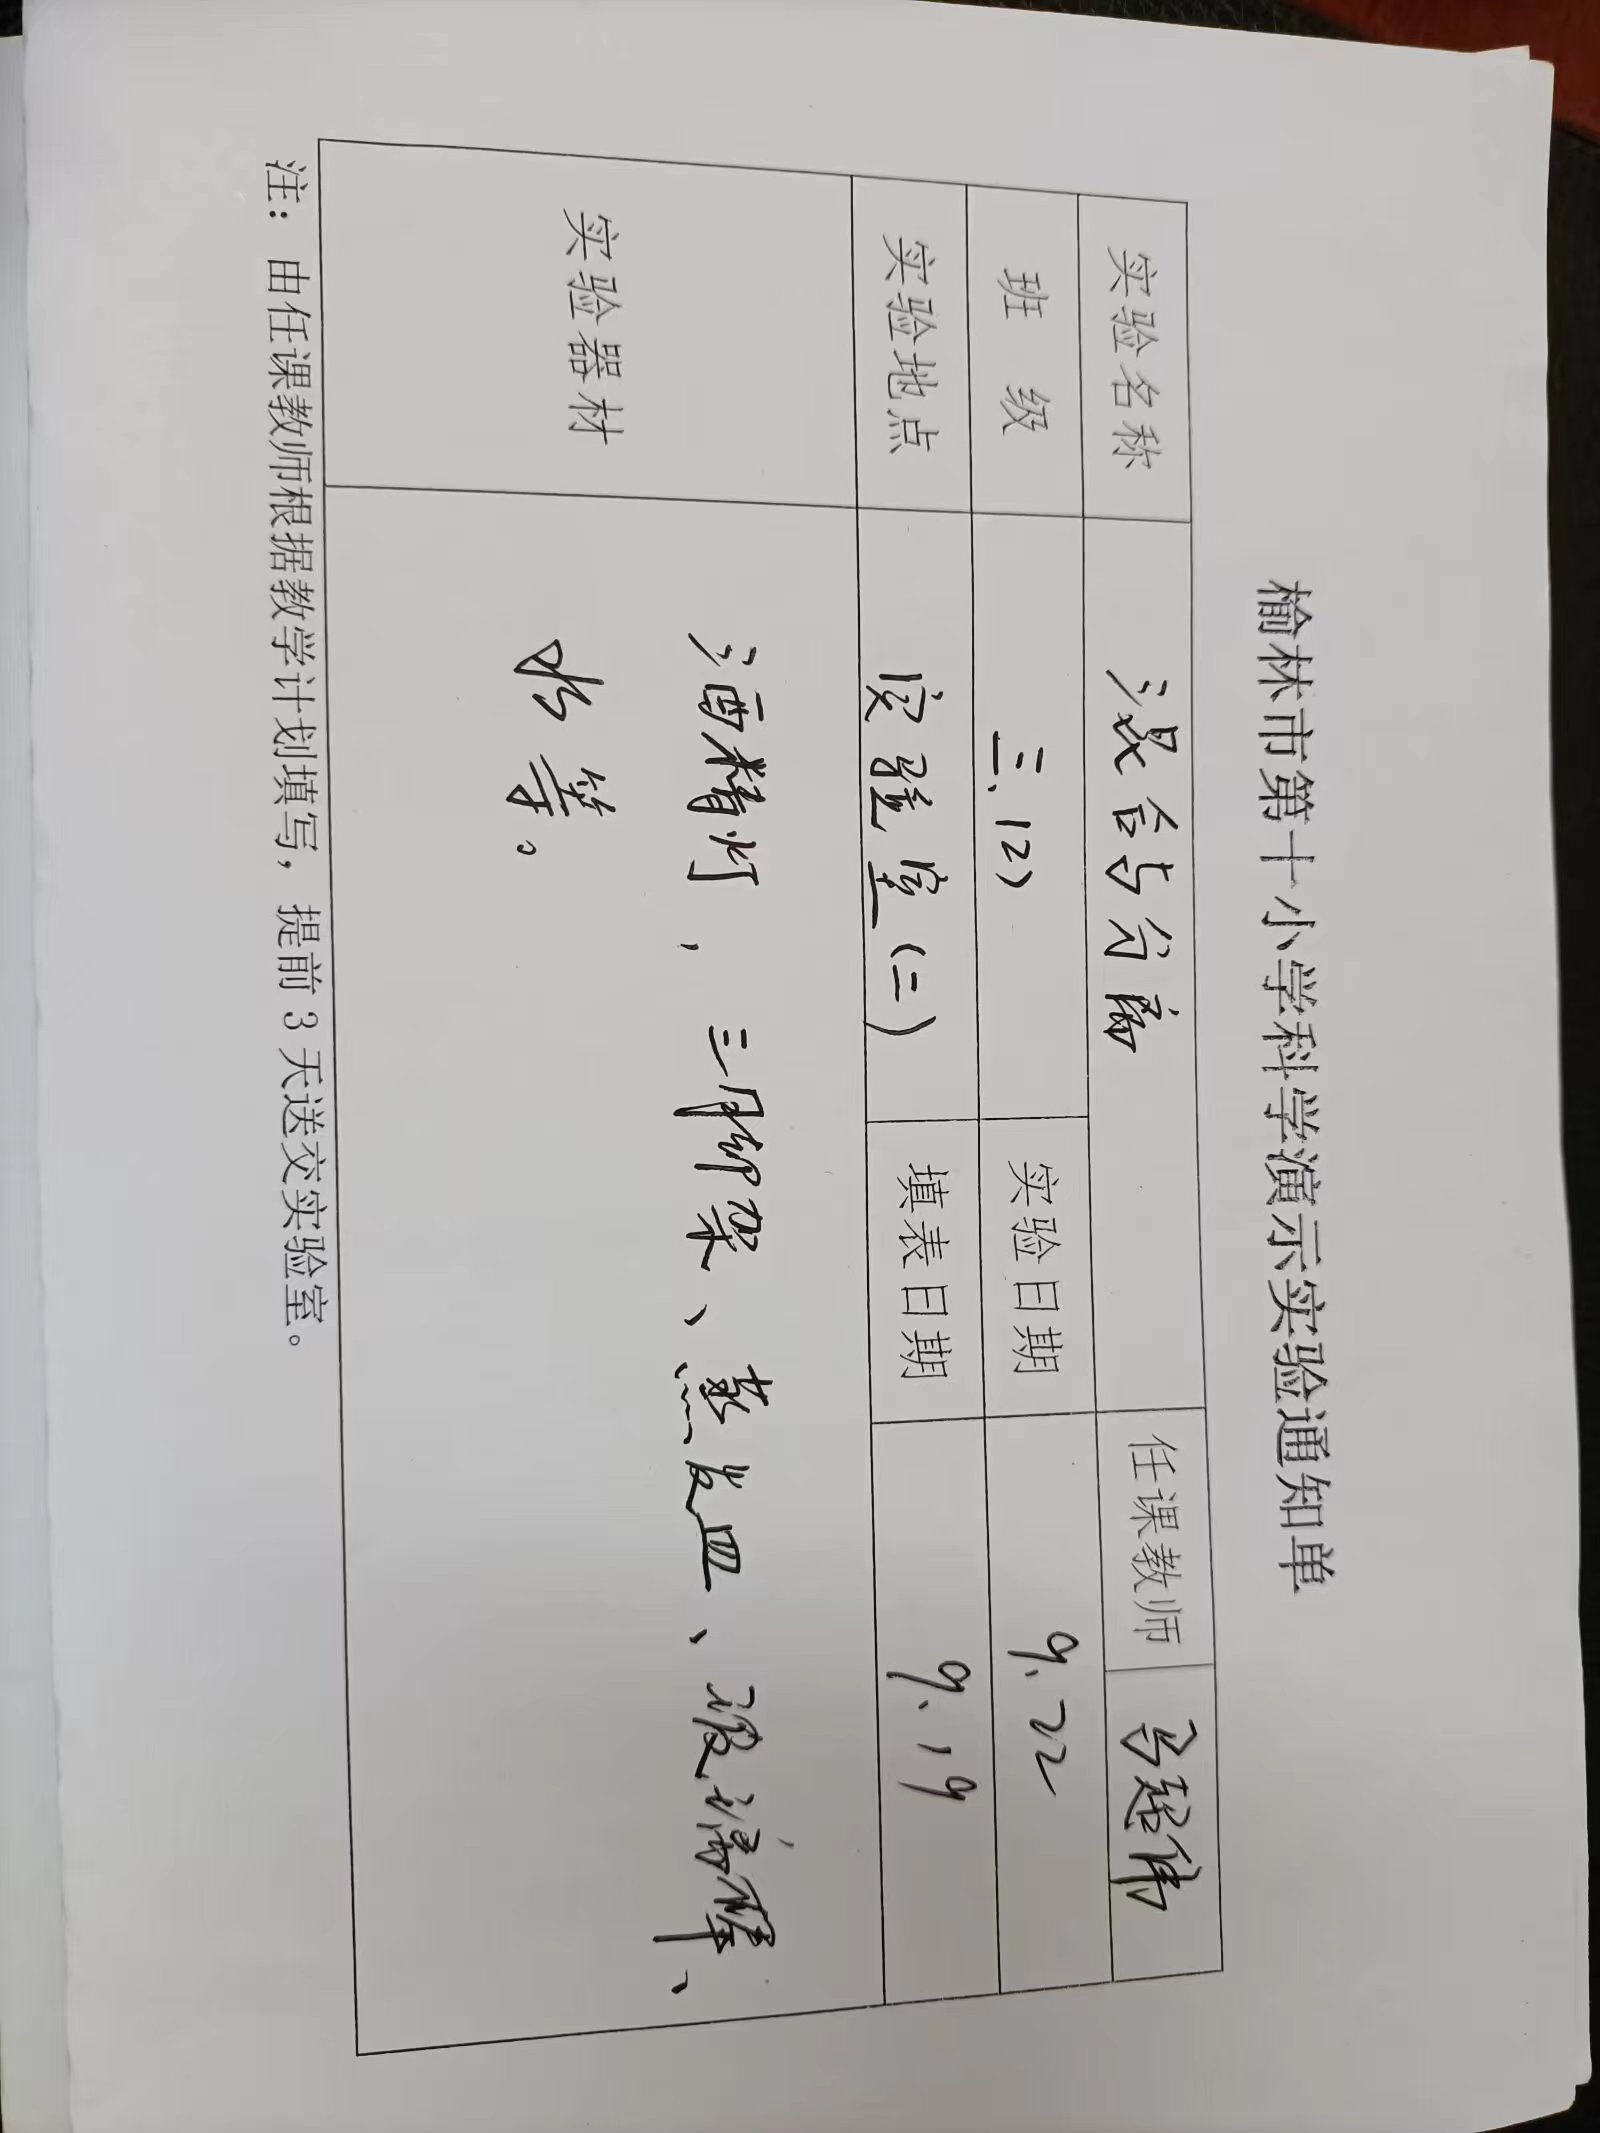 榆林市第十小学科学演示实验通知单
实验名称 混合与分离 任课教师 马超伟
班 级 三.(2) 实验日期 9.22
实验地点 实验室(二) 填表日期 9.19
实验器材 酒精灯,三脚架、蒸发皿、玻璃棒、
水等。
注:由任课教师根据教学计划填写,提前3天送交实验室。